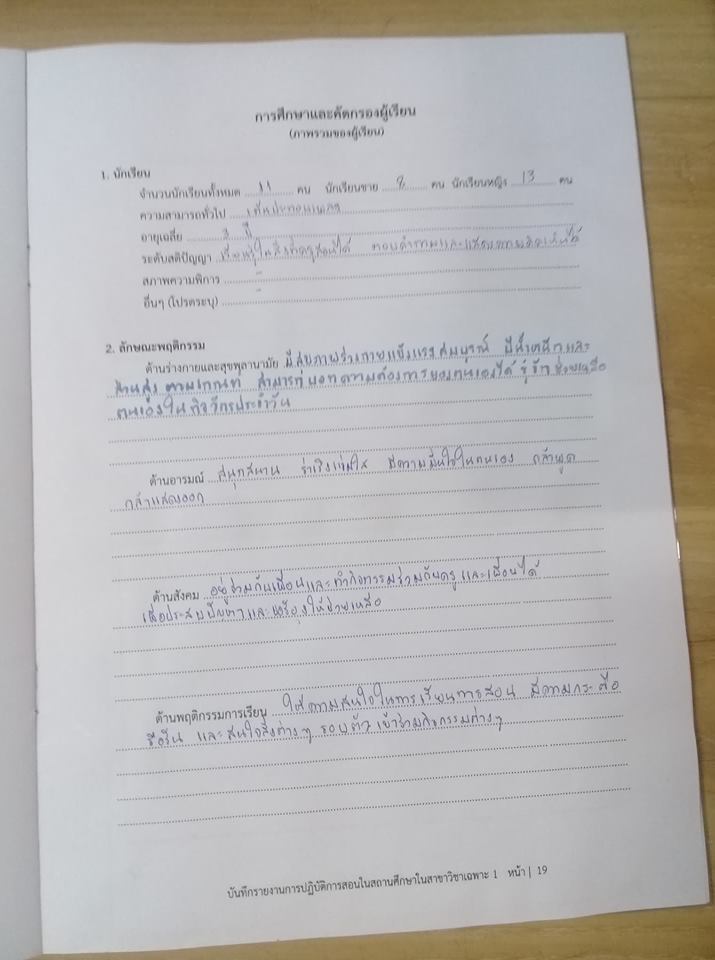 การศึกษาและคัดกรองผู้เรียน
(ภาพรวมของผู้เรียน)
1. นักเรียน
จำนวนนักเรียนทั้งหมด คน นักเรียนชาย 8 คน นักเรียนหญิง 13 คน
ความสามารถทั่วไป
อายุเฉลี่ย 3 ปี
ระดับสติปัญญา เรียนรู้ในสิ่งที่ครูสอนได้ ตอบคำถามและแสดงความคิดเห็นได้
สภาพความพิการ -
อื่นๆ (โปรดระบุ) -
2. ลักษณะพฤติกรรม
ด้านร่างกายและสุขพลานามัย มีสุขภาพร่างกายแข็งแรงสมบูรณ์ มีน้ำหนักและ
ส่วนสูง ตามเกณฑ์ สามารถบอกความต้องการของตนเองได้ รู้จักช่วยเหลือ
ตนเองในกิจวัตรประจำวัน
ด้านอารมณ์ สนุกสนาน ร่าเริงแจ่มใส มีความมั่นใจในตนเอง กล้าพูด
กล้าแสดงออก
ด้านสังคม อยู่ร่วมกับเพื่อนและทำกิจกรรมร่วมกับครูและเพื่อนได้
เมื่อประสบปัญหาและให้ช่วยเหลือ
ด้านพฤติกรรมการเรียน ให้ความสนใจในการเรียนการสอน มีความกระตือ
รือร้น และสนใจสิ่งต่างๆ รอบตัว เข้าร่วมกิจกรรมต่างๆ
บันทึกรายงานการปฏิบัติการสอนในสถานศึกษาในสาขาวิชาเฉพาะ 1 หน้า | 19